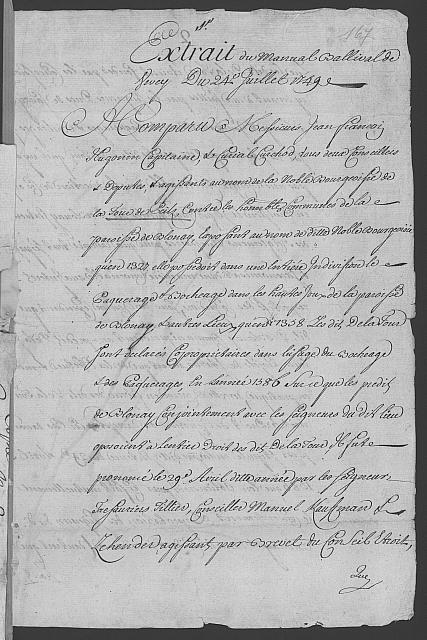 167
Extrait du Manual Ballival de
Vevey Du 24e Juillet 1749
A Comparu Messieurs Jean francoi
Hugonin Capitaine, & Curial Cuchod, tous deux Conseillers
& Deputés, & agissants au nom de la Noble Bourgeoisie de
la Tour de Peilz, Contre les honnble Communes de la
paroisse de Blonay, Exposant au nom de ditte Noble Bourgeoisie
quen 1327 elle possedoit dans une Entiere Indivision le
Paquerage & Bocheage dans les hautes Joux de la paroisse
de Blonay & autres Lieux, quen 1358 Les dit De la Tour
sont declarés Coproprietaires dans lusage du Bocheage
& des Paquerages En Lannée 1586 Sur ce que les predit
de Blonay Conjointement avec les Seigneurs du dit lieu
oposoient a lentier Droit des dit De la Tour, Il fut
prononcé le 29e Avril ditte année par les Seigneurs
Tresauriers Tillier, Conseiller Manuel Kauffman &
Zehender agissant par Brevet du Conseil Etroit,
Que